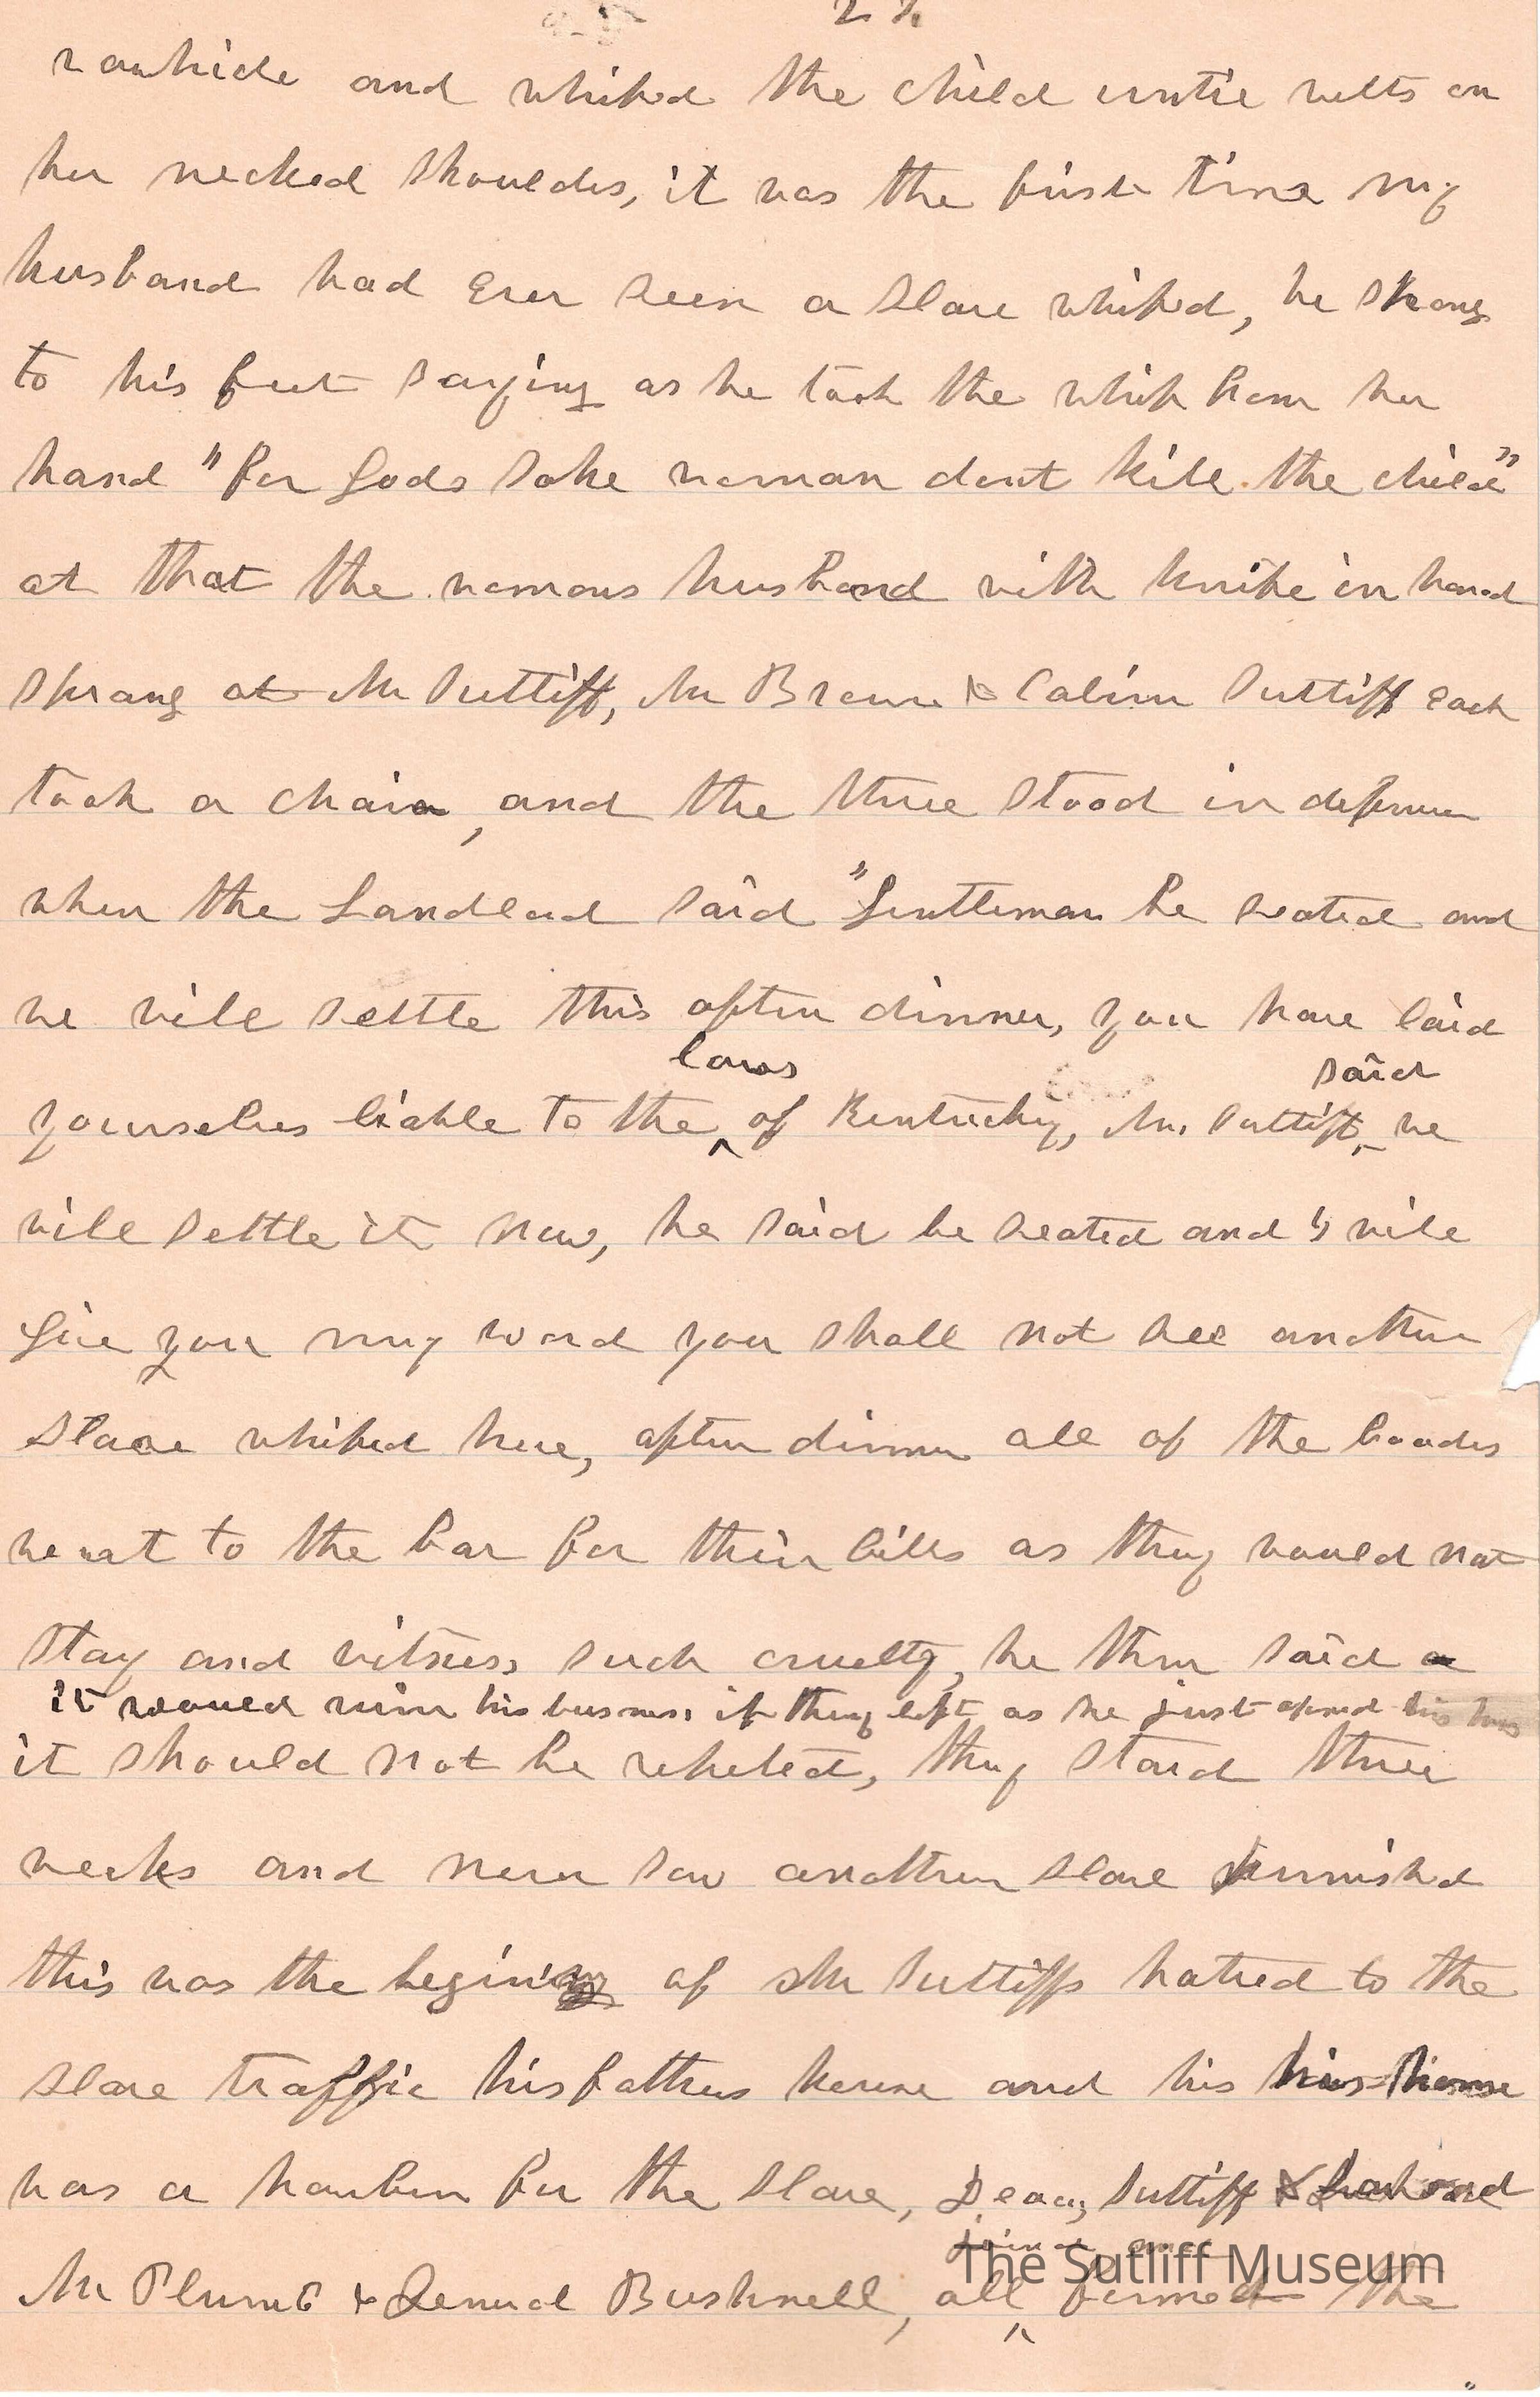 2
rawhide and whiped the child until welts on
her necked shoulders, it was the first time my
husband had ever seen a slave whiped, he sprang
to his feet saying as he took the whip from her
hand "for Gods sake woman dont kill the child"
at that the womans husband with knife in hand
sprang at Mr Sutliff, Mr Brown & Calvin Sutliff each
took a chair, and the three stood in defense
when the Landlord said "Gentleman be seated and
we will settle this after dinner, you have laid
laws said
yourselves liable to the ^ of Kentucky, Mr. Sutliff ^ we
will settle it now, he said be seated and I will
give you my word you shall not see another
slave whiped here, after dinner all of the boaders
went to the bar for their bills as they would not
stay and witness such cruelty, he then said
it would ruin his business if they left as he just opened his
it should not be repeted, they staid three
weeks and never saw another slave punnished
this was the begining of Mr Sutliffs hatred to the
slave traffic his fathers house and his his home
was a harber for the slave, Deacy Sutliff &
joined
Mr Plumb & Lemuel Bushnell, all ^ formed the
The Sutliff Museum